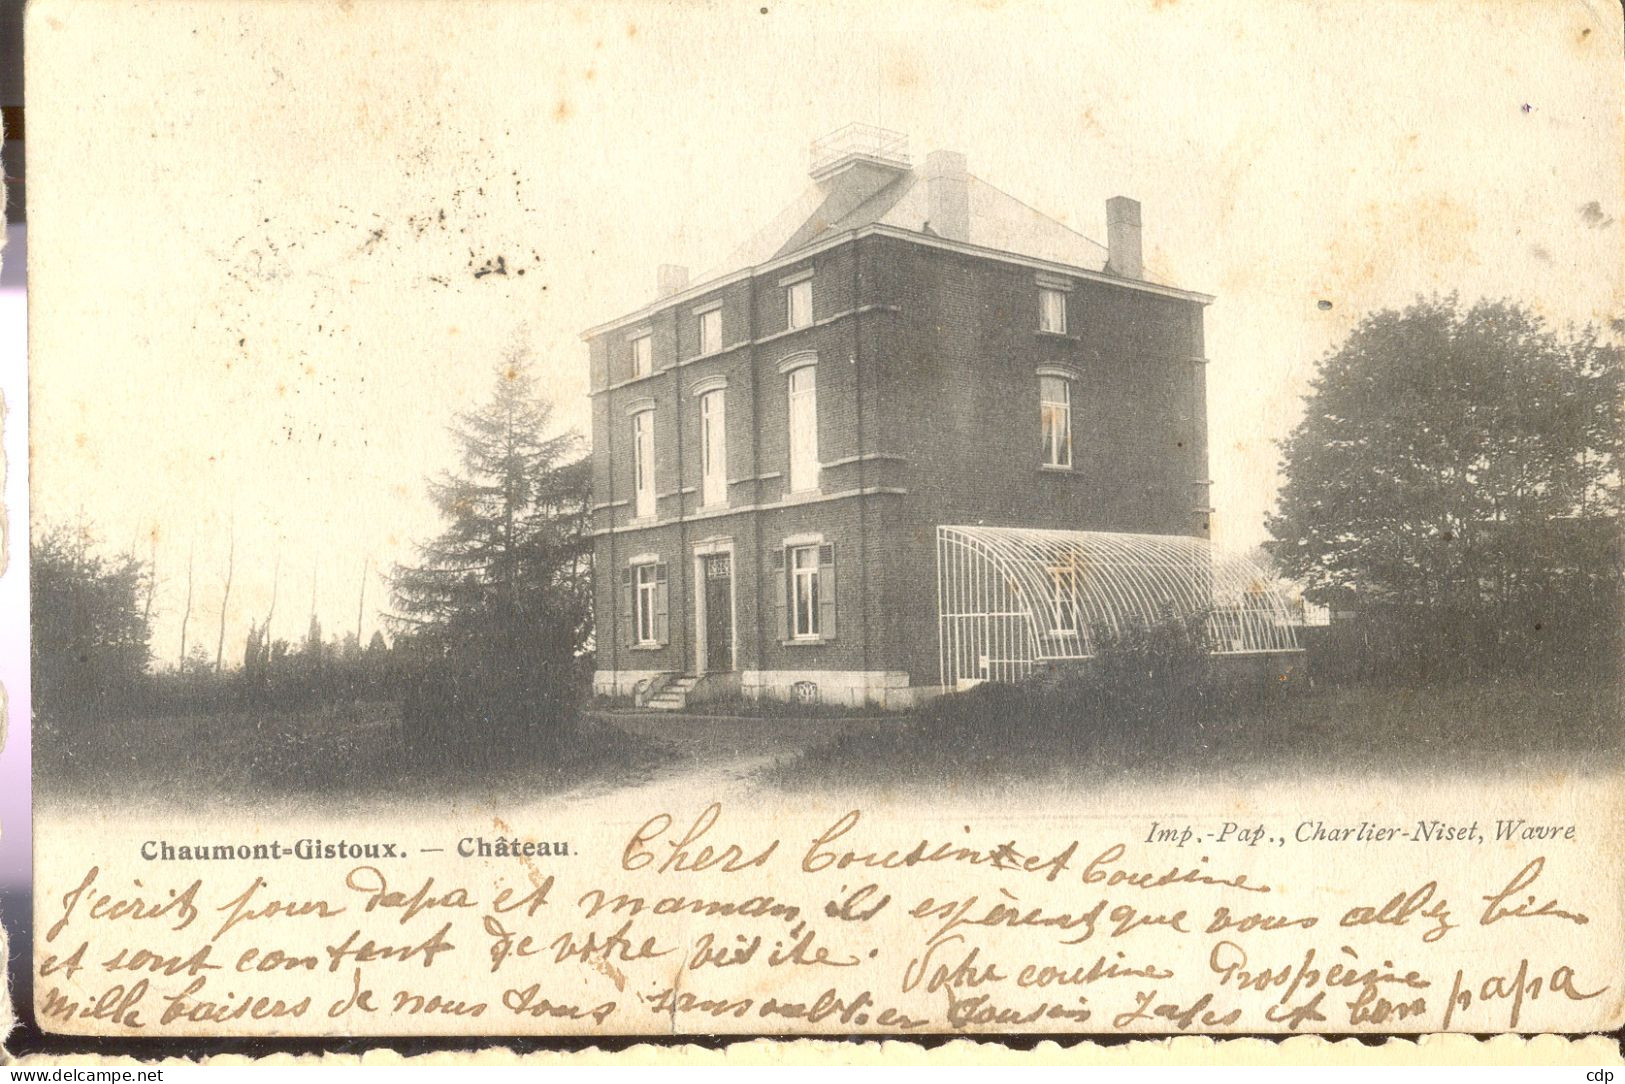 Chaumont-Gistoux. — Château.
Imp.-Pap., Charlier-Niset, Wavre
Chers Cousin et Cousine
J'écrit pour papa et maman, ils espèrent que vous allez bien
et sont content de votre visite. Votre cousine Prospèrine
Mille baisers de nous tous sans oublier cousin Jules et bon papa
delcampe.net
cdp